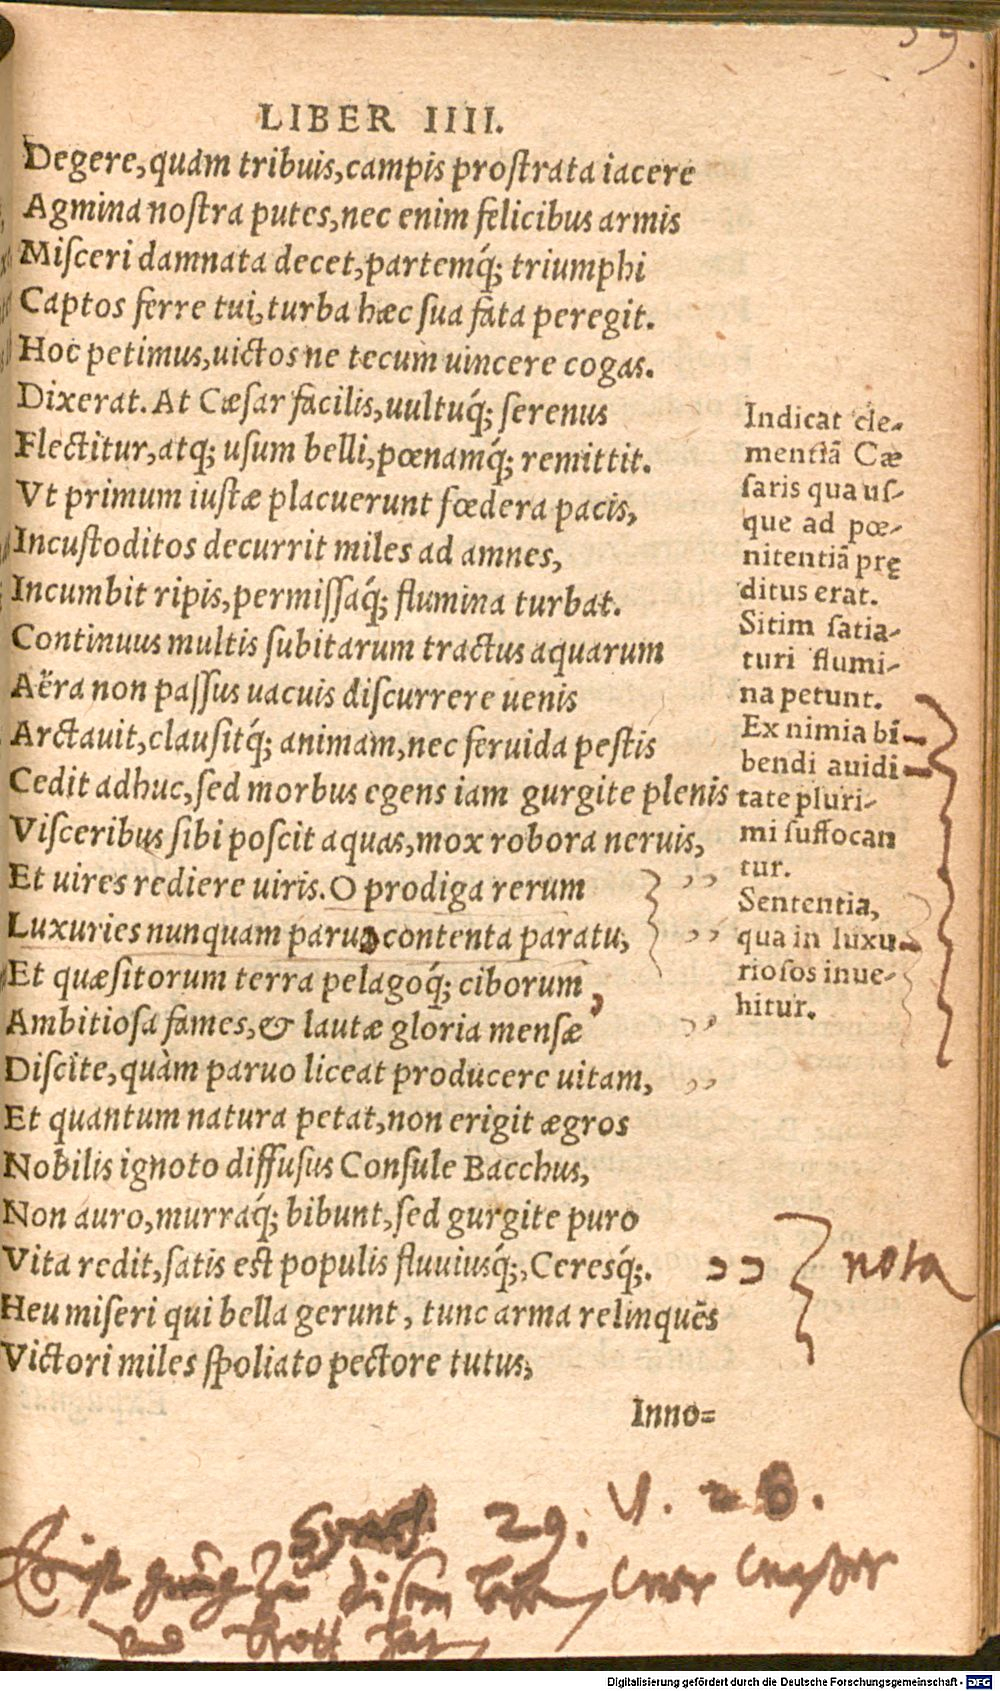 39.
LIBER IIII.
Degere, quàm tribuis, campis prostrata iacere
Agmina nostra putes, nec enim felicibus armis
Misceri damnata decet, partemq́; triumphi
Captos ferre tui, turba hæc sua fata peregit.
Hoc petimus, uictos ne tecum uincere cogas.
Dixerat. At Cæsar facilis, uultuq́; serenus
Flectitur, atq; usum belli, pœnamq́; remittit.
Vt primum iustæ placuerunt fœdera pacis,
Incustoditos decurrit miles ad amnes,
Incumbit ripis, permissaq́; flumina turbat.
Continuus multis subitarum tractus aquarum
Aëra non passus uacuis discurrere uenis
Arctauit, clausitq́; animam, nec feruida pestis
Cedit adhuc, sed morbus egens iam gurgite plenis
Visceribus sibi poscit aquas, mox robora neruis,
Et uires rediere uiris. O prodiga rerum
Luxuries nunquam paruo contenta paratu,
Et quæsitorum terra pelagoq́; ciborum
Ambitiosa fames, & lautæ gloria mensæ
Discite, quàm paruo liceat producere uitam,
Et quantum natura petat, non erigit ægros
Nobilis ignoto diffusus Consule Bacchus,
Non auro, murraq́; bibunt, sed gurgite puro
Vita redit, satis est populis fluuiusq́;, Ceresq́;.
Heu miseri qui bella gerunt, tunc arma relinquẽs
Victori miles spoliato pectore tutus,
Inno=
Indicat cle-
mentiã Cæ
saris qua us-
que ad pœ-
nitentiã prę
ditus erat.
Sitim satia-
turi flumi-
na petunt.
Ex nimia bĩ-
bendi auidi
tate pluri-
mi suffocan
tur.
Sententia,
qua in luxu-
riosos inue-
hitur.
nota
Syrach. 29. V. 28.
Ist gnug zu disem leben, wer wasser
und brott hat